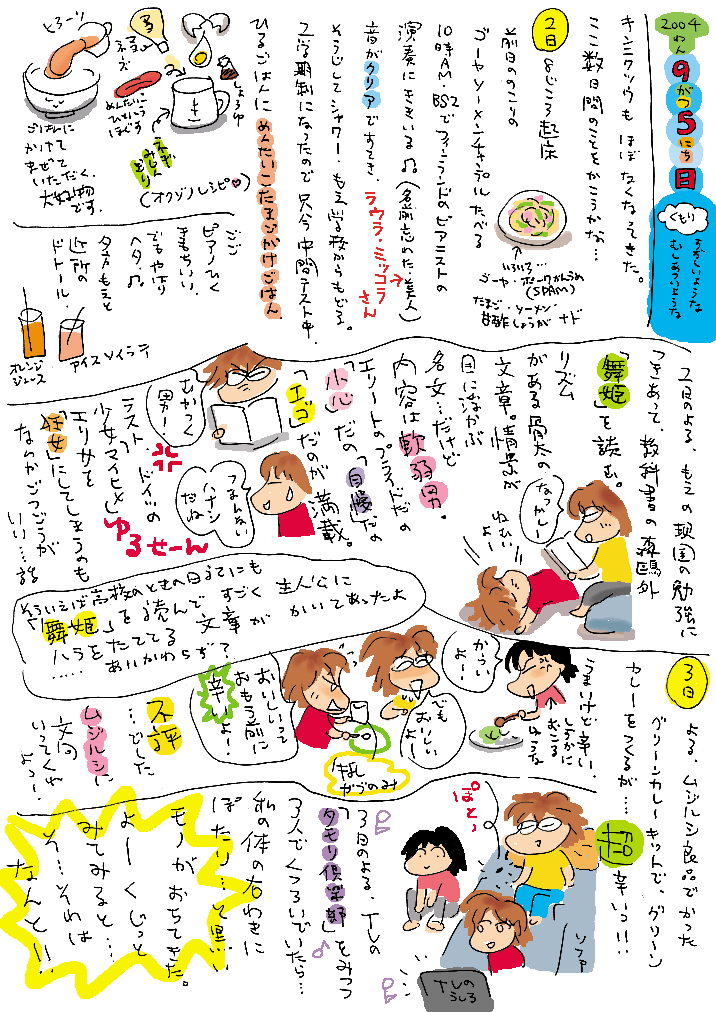 2004
ねん
9
がつ
5
にち
日
くもり
すずしいような
むしあついような
キンニクツウも ほぼなくなってきた。
ここ数日間のことをかこうかな…
2日
8じごろ起床
前日ののこりの
ゴーヤソーメンチャンプルたべる
いろいろ…
ゴーヤ・ポークかんづめ
(SPAM)
たまご・ソーメン・
甘酢しょうが ナド
10時AM・BS2でフィンランドのピアニストの
演奏にききいる♫(名前忘れた美人)
ラウラ・ミッコラ
さん
音がクリアですてき。
そうじしてシャワー。もえ学校からもどる。
2学期制になったので只今中間テスト中。
ひるごはんに めんたいこたまごかけごはん
(オクゾノレシピ♥)
とろーり
マヨ
ネー
ズ
めんたいこ
ひとハラ
ほどす
しょうゆ
ネギ
みじん
ぎり
ごはんに
かけて
まぜて
いただく。
大好物です。
ごご
ピアノひく
きもちいい。
でもやはり
ヘタ♫
夕方もえと
近所の
ドトール。
オレンジ
ジュース
アイスマイラテ
2日のよる、もえの現国の勉強に
つきあって、教科書の森鴎外
「舞姫」を読む。
リズム
がある骨太の
文章。情景が
目に浮かぶ
名文…だけど
内容は軟弱男。
エリートのプライドだの
「小心」だの「自慢」だの
「エゴ」だのが満載。
なつかしー
ねむいよー
むかつく
男!
つまんない
ハナシ
だね
ラスト、ドイツの
少女マイヒメ
エリサを
「狂女」にしてしまうのも
なんかごつごうが
いい…
ゆるせーん
そういえば高校のときの日記にも
「舞姫」を読んですごく主人公に
ハラをたててる文章がかいてあったよ
……あいかわらず?
3日
よる、ムジルシ良品でかった
グリーンカレーキットで、グリーン
カレーをつくるが…
超辛いっ!!
うまいけど辛い。
からい
よー
でも
おいしい
よー
おいしいって
おもう前に
辛いよー!
不評
…でした
ムジルシに
文句
いってくれ
よっ!
3日のよる、TVの
「タモリ倶楽部」をみつつ
3人でくつろいでいたら…
私の体の右わきに
ぽたり…って黒い
モノがおちてきた。
よーくじっと
みてみると…
そ…それは
なんと!!
ぽとっ
ソファ
TVの
うしろ